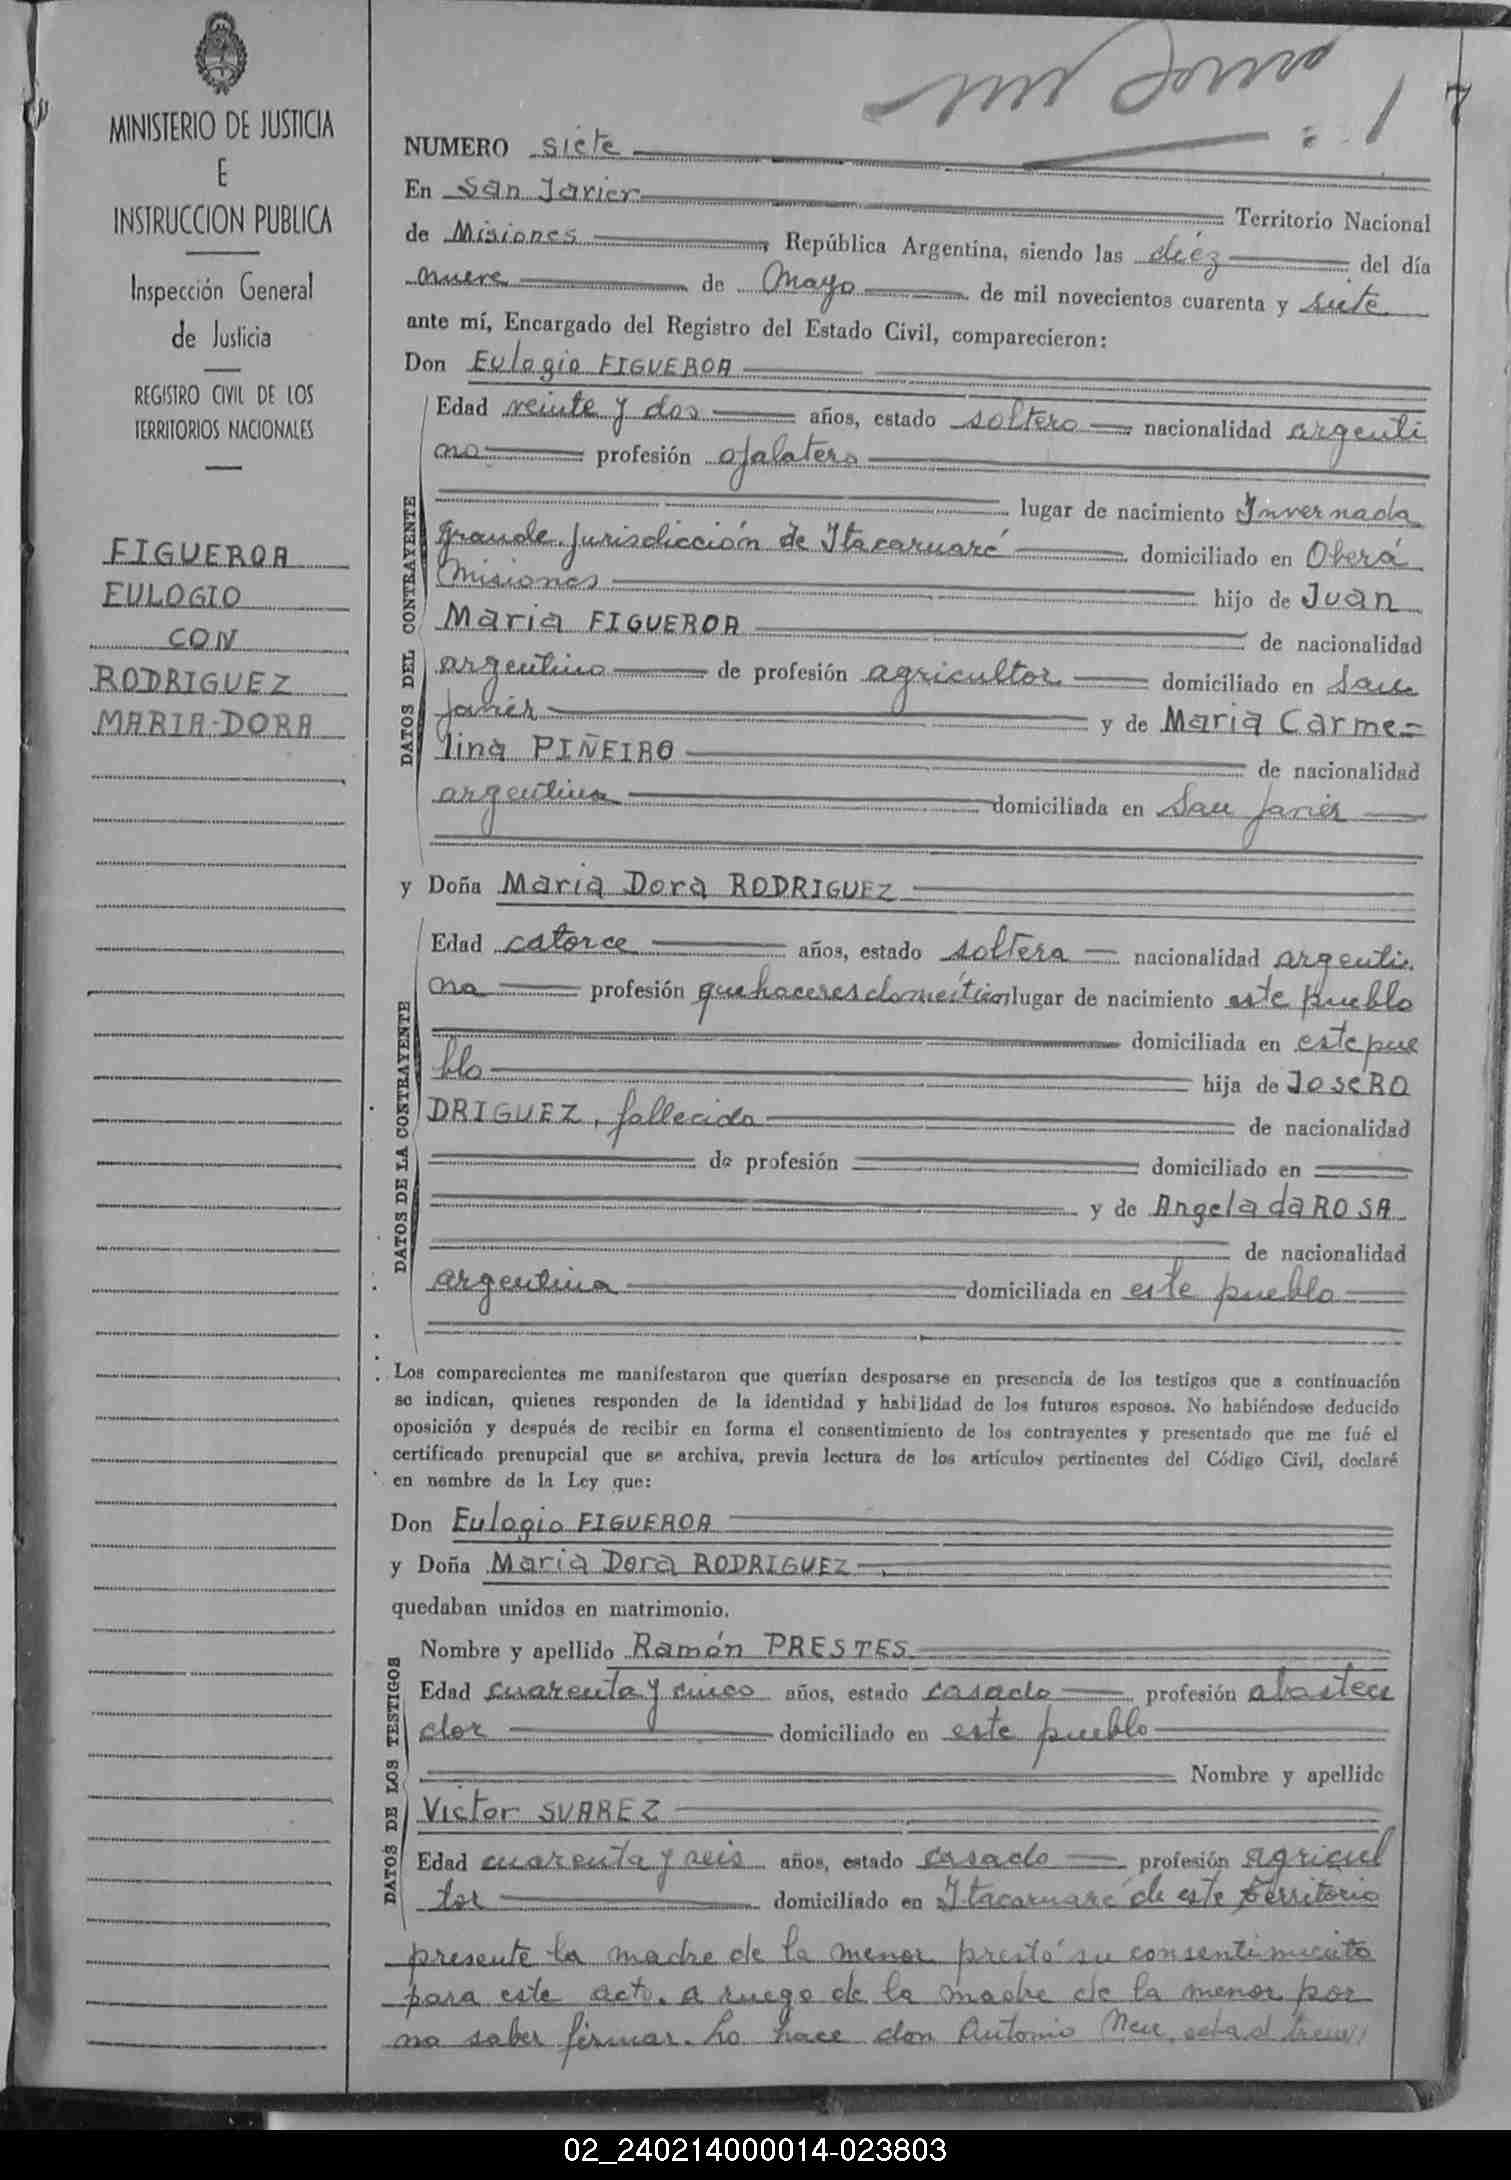 MINISTERIO DE JUSTICIA
E
INSTRUCCION PUBLICA
Inspección General
de Justicia
REGISTRO CIVIL DE LOS
TERRITORIOS NACIONALES
FIGUEROA
EULOGIO
CON
RODRIGUEZ
MARIA-DORA
7
NUMERO siete
En San Javier Territorio Nacional
de Misiones, República Argentina, siendo las diéz del día
nueve de Mayo de mil novecientos cuarenta y siete
ante mí, Encargado del Registro del Estado Civil, comparecieron:
Don Eulogio FIGUEROA
DATOS DEL CONTRAYENTE
Edad veinte y dos años, estado soltero nacionalidad argenti
no profesión ojalatero
lugar de nacimiento Invernada
grande Jurisdicción de Itacaruaré domiciliado en Oberá
Misiones hijo de Juan
Maria FIGUEROA de nacionalidad
argentino de profesión agricultor domiciliado en San
Javier y de Maria Carme=
lina PIÑEIRO de nacionalidad
argentina domiciliada en San Javier
y Doña Maria Dora RODRIGUEZ
DATOS DE LA CONTRAYENTE
Edad catorce años, estado soltera nacionalidad argenti
na profesión quehaceres domésticos lugar de nacimiento este pueblo
domiciliada en este pue
blo hija de Jose RO
DRIGUEZ, fallecido de nacionalidad
de profesión domiciliado en
y de Angela da ROSA
de nacionalidad
argentina domiciliada en este pueblo
Los comparecientes me manifestaron que querían desposarse en presencia de los testigos que a continuación
se indican, quienes responden de la identidad y habilidad de los futuros esposos. No habiéndose deducido
oposición y después de recibir en forma el consentimiento de los contrayentes y presentado que me fué el
certificado prenupcial que se archiva, previa lectura de los artículos pertinentes del Código Civil, declaré
en nombre de la Ley que:
Don Eulogio FIGUEROA
y Doña Maria Dora RODRIGUEZ
quedaban unidos en matrimonio.
DATOS DE LOS TESTIGOS
Nombre y apellido Ramón PRESTES
Edad cuarenta y cinco años, estado casado profesión abastece
dor domiciliado en este pueblo
Nombre y apellido
Victor SUAREZ
Edad cuarenta y seis años, estado casado profesión agricul
tor domiciliado en Itacaruaré de este territorio
presente la madre de la menor prestó su consentimiento
para este acto. a ruego de la madre de la menor por
no saber firmar. Lo hace don Antonio edad
02_240214000014-023803